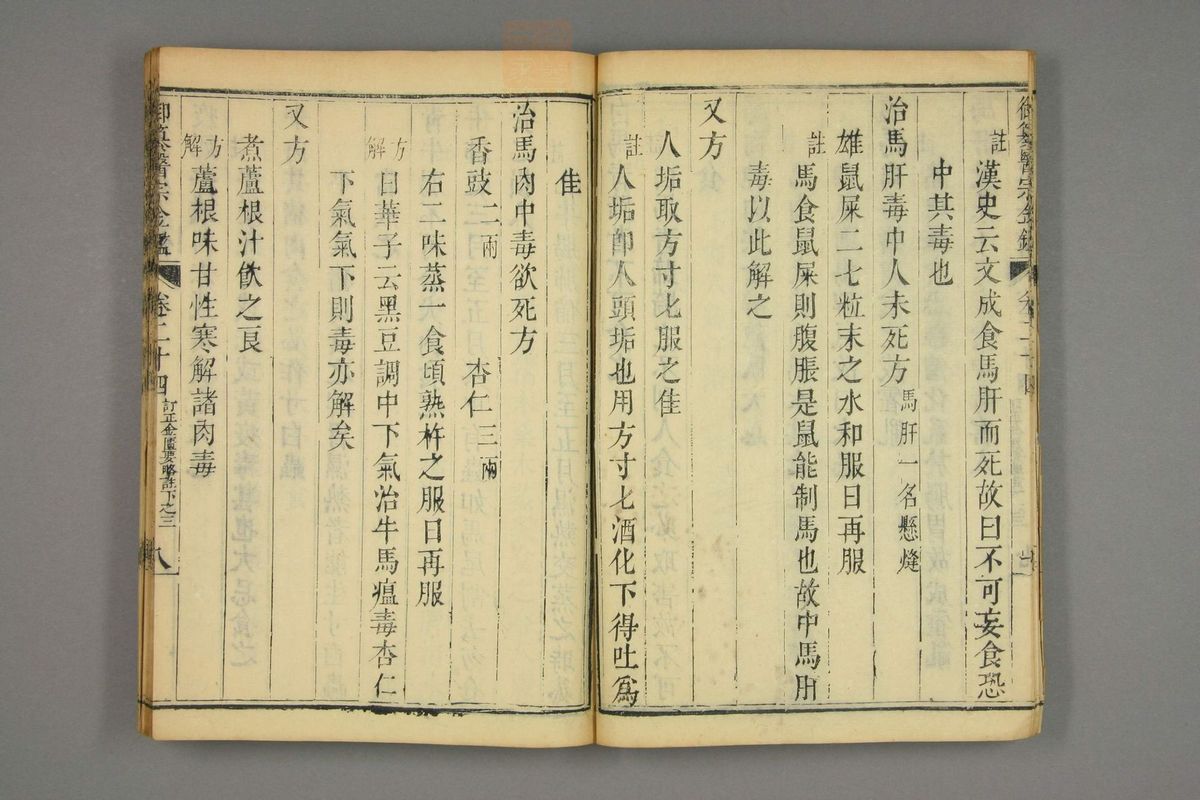 註漢史云文成食馬肝而死故曰不可妄食恐
中其毒也
治馬肝毒中人未死方 馬肝一名懸熢
雄鼠屎二七粒末之水和服日再服
註馬食鼠屎則腹脹是鼠能制馬也故中馬肝
毒以此解之
又方
人垢取方寸匕服之佳
註人垢卽人頭垢也用方寸匕酒化下得吐爲
佳
治馬肉中毒欲死方
香豉二兩 杏仁三兩
右二味蒸一食頃熟杵之服日再服
方解日華子云黑豆調中下氣治牛馬瘟毒杏仁
下氣氣下則毒亦解矣
又方
煮蘆根汁飮之良
方解蘆根味甘性寒解諸肉毒
御纂醫宗金鑑 卷二十四 訂正金匱要略註下之三 八